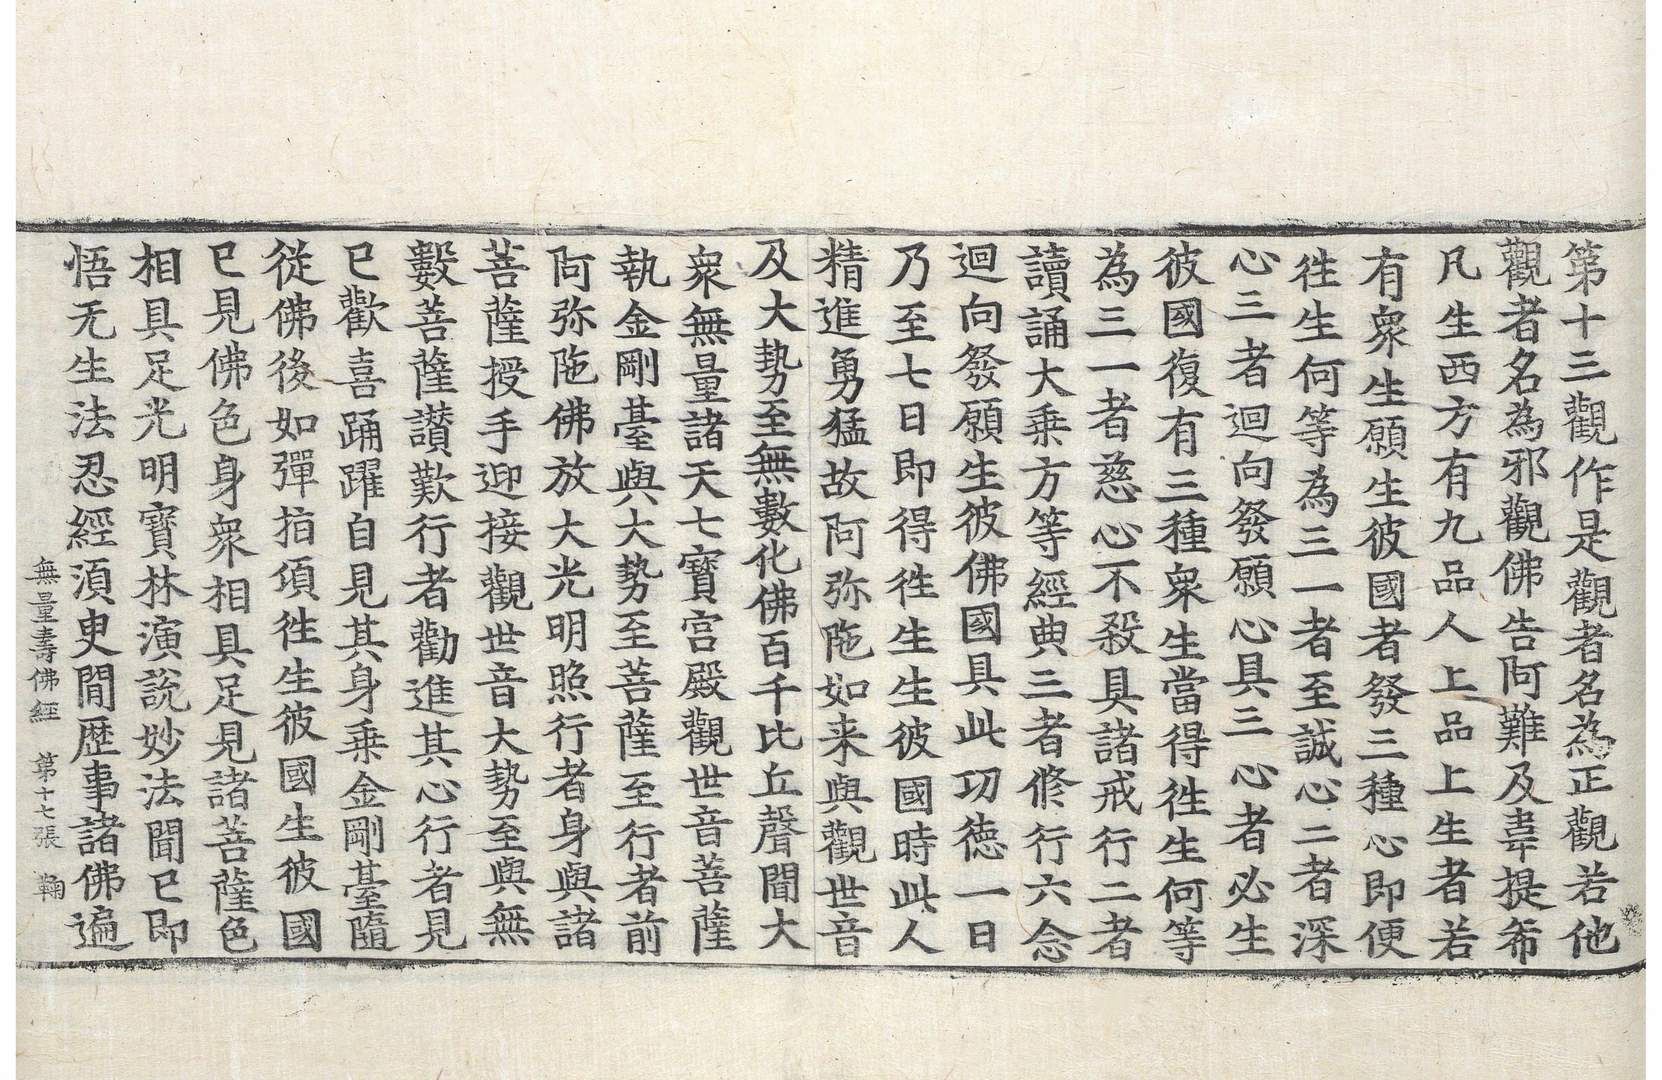 第十三觀作是觀者名為正觀若他
觀者名為邪觀佛告阿難及韋提希
凡生西方有九品人上品上生者若
有衆生願生彼國者發三種心即便
往生何等為三一者至誠心二者深
心三者迴向發願心具三心者必生
彼國復有三種衆生當得往生何等
為三一者慈心不殺具諸戒行二者
讀誦大乗方等經典三者修行六念
迴向發願生彼佛國具此功徳一日
乃至七日即得往生生彼國時此人
精進勇猛故阿弥陁如来與觀世音
及大勢至無數化佛百千比丘聲聞大
衆無量諸天七寶宮殿觀世音菩薩
執金剛臺與大勢至菩薩至行者前
阿弥陁佛放大光明照行者身與諸
菩薩授手迎接觀世音大勢至與無
數菩薩讃歎行者勸進其心行者見
已歡喜踊躍自見其身乗金剛臺隨
從佛後如彈指頃往生彼國生彼國
已見佛色身衆相具足見諸菩薩色
相具足光明寶林演說妙法聞已即
悟无生法忍經湏臾間歷事諸佛遍
無量壽佛經 第十七張 鞠